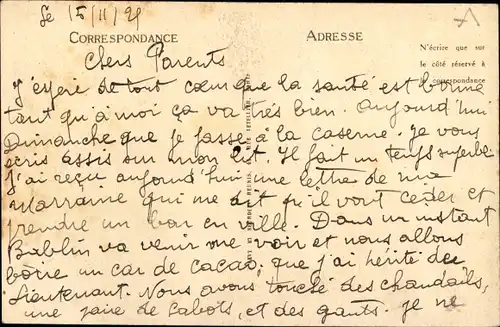 le 15/11/25
CORRESPONDANCE
ADRESSE
N'écrire que sur
le côté réservé à
la correspondance
Chers Parents
J'éspère de tout cœur que la santé est bonne
tant qu'à moi ça va très bien. Aujourd'hui
Dimanche que je passe à la caserne. je vous
écris assis sur mon lit. Il fait un temps superbe
j'ai reçu aujourd'hui une lettre de ma
Marraine qui me dit qu'il vont céder et
prendre un bar en ville. Dans un instant
Bablin va venir me voir et nous allons
boire un car de cacao, que j'ai hérité des
Lieutenant. Nous avons touché des chandails,
une paire de sabots, et des gants. je ne